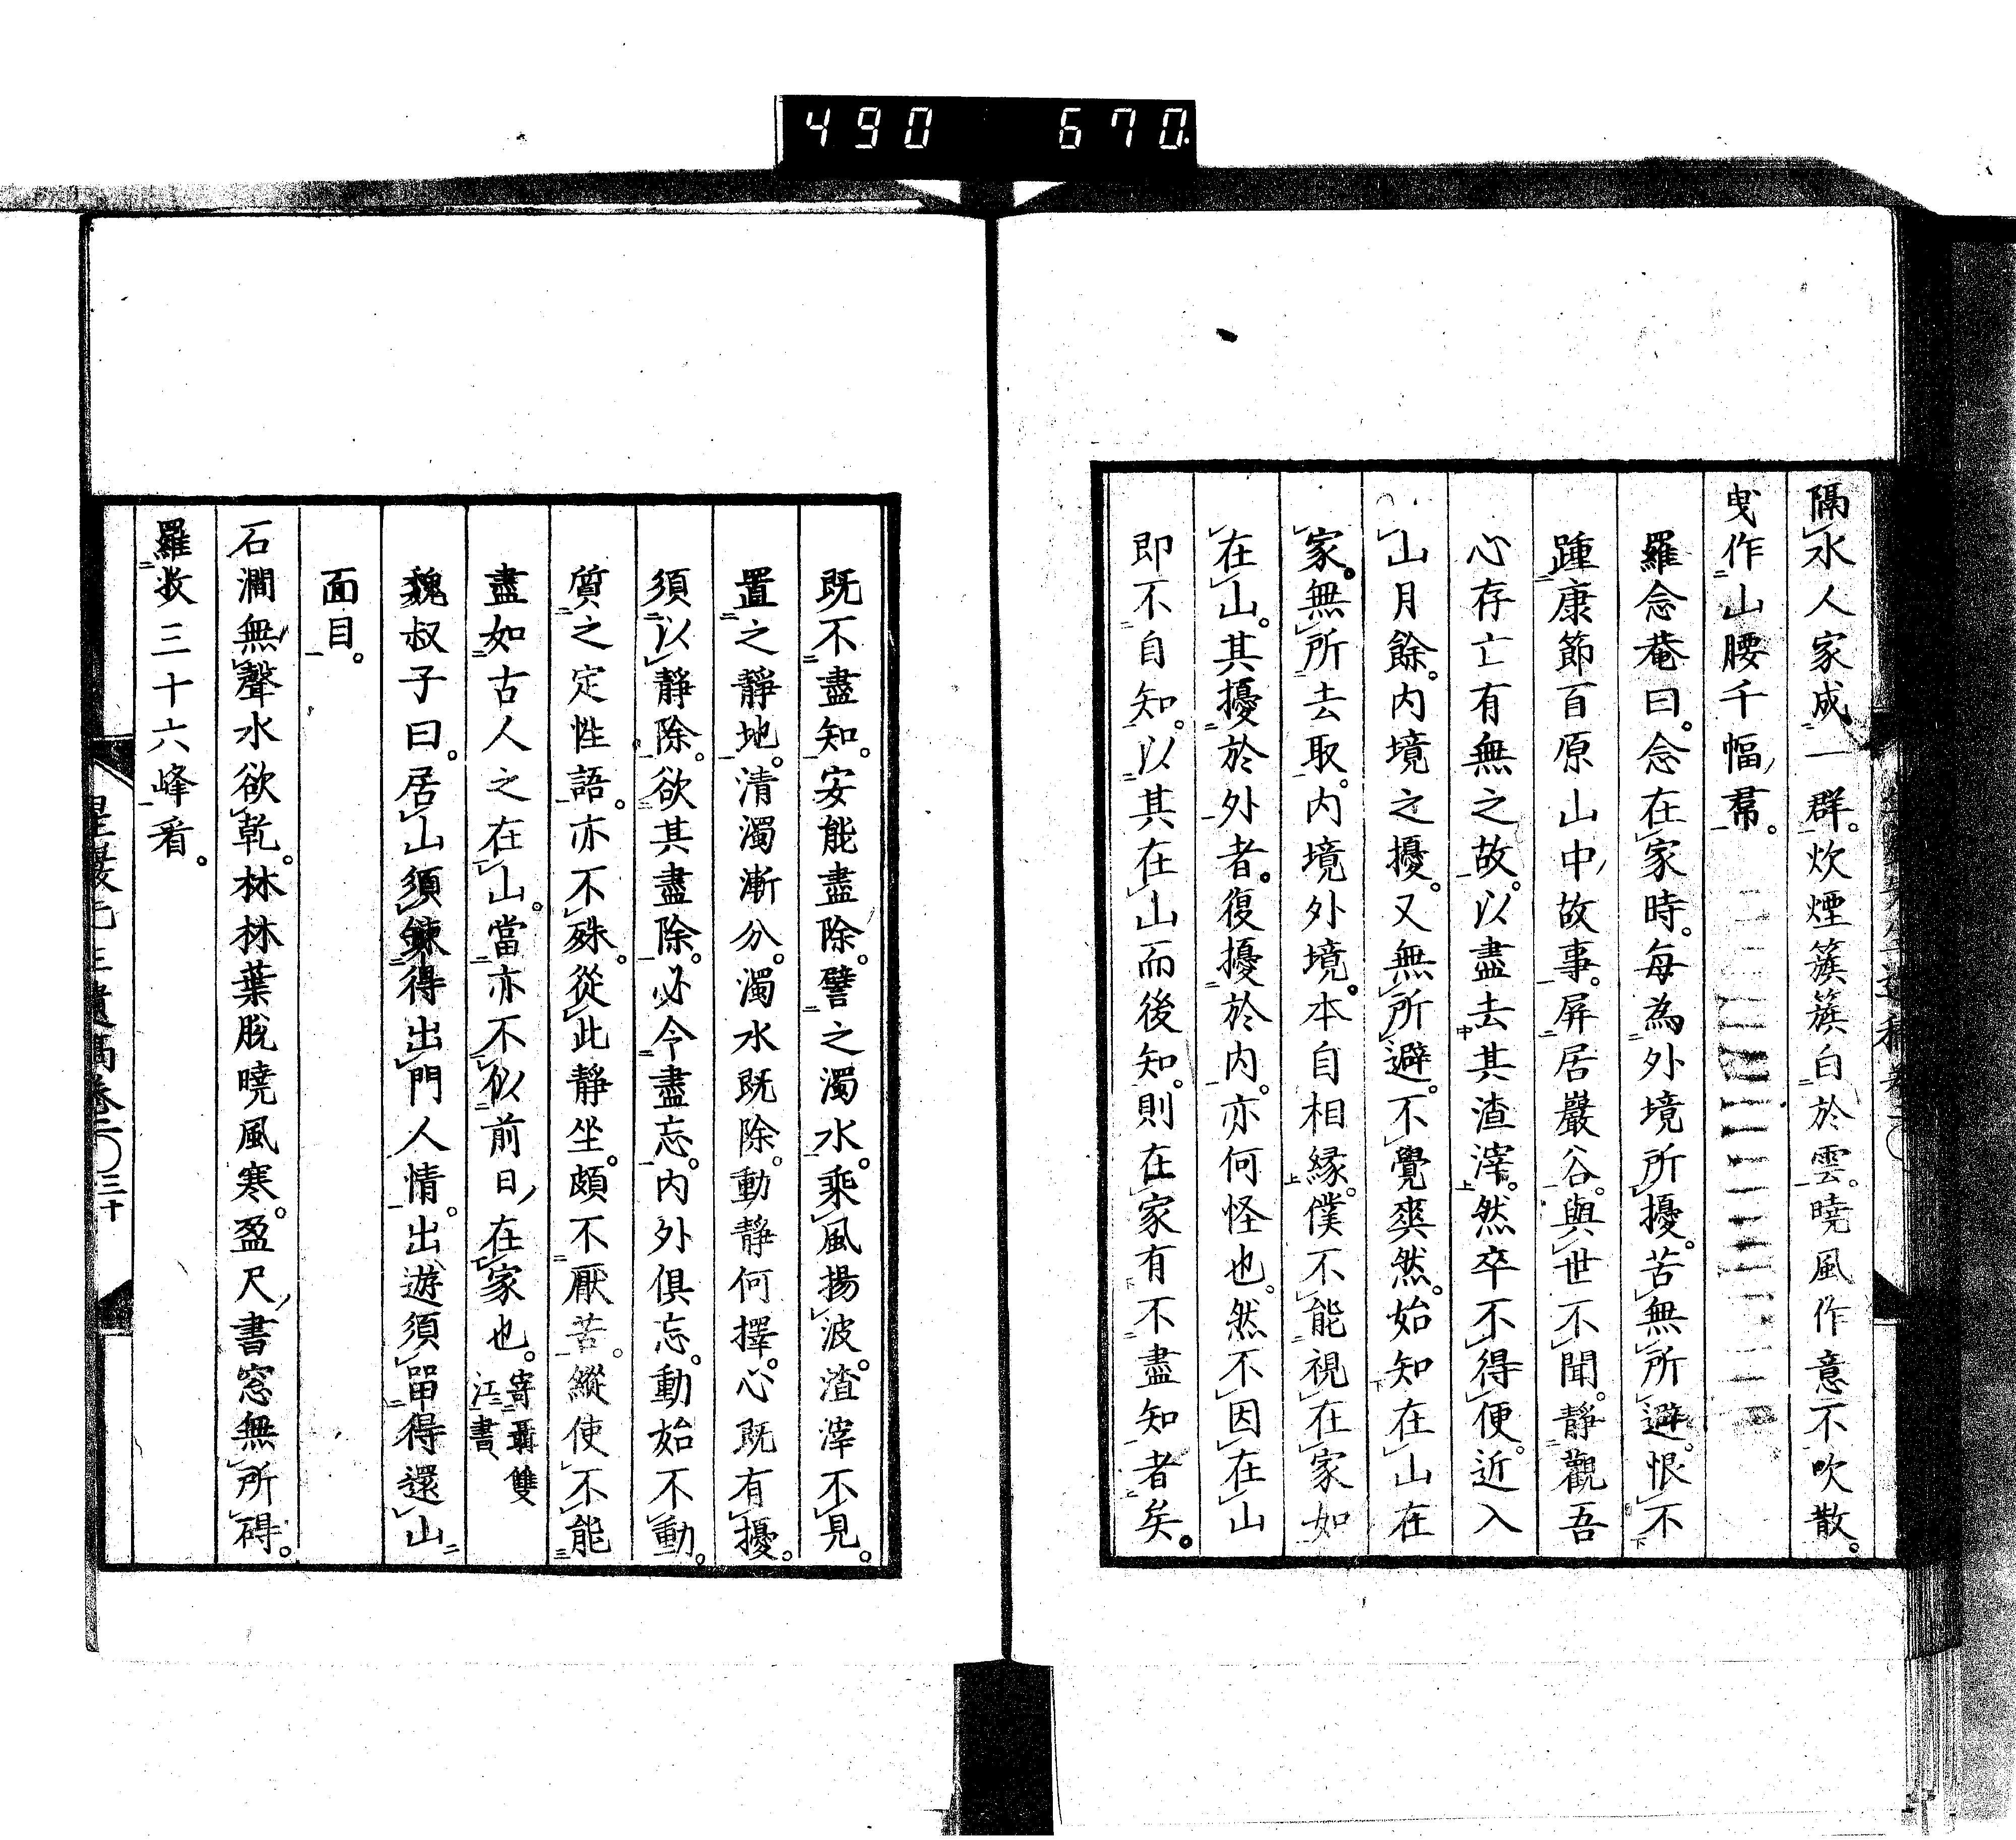 490 670
隔水人家成一群。炊煙簇簇白於雲。曉風作意不吹散。
曳作山腰千幅帬。
羅念菴曰。念在家時。每為外境所擾。苦無所避。恨不
踵康節百原山中故事。屏居巖谷。與世不聞。靜觀吾
心存亡有無之故。以盡去其渣滓。然卒不得便。近入
山月餘。内境之擾。又無所避。不覺爽然。始知在山在
家。無所去取。内境外境。本自相縁。僕不能視在家如
在山。其擾於外者。復擾於内。亦何怪也。然不因在山
即不自知。以其在山而後知。則在家有不盡知者矣。
既不盡知。安能盡除。譬之濁水。乘風揚波。渣滓不見。
置之靜地。清濁漸分。濁水既除。動靜何擇。心既有擾。
須以靜除。欲其盡除。必令盡忘。内外俱忘。動始不動。
質之定性語。亦不殊。從此靜坐。頗不厭苦。縱使不能
盡如古人之在山。當亦不似前日在家也。寄聶雙
江書
魏叔子曰。居山須鍊得出門人情。出遊須畱得還山
面目。
石澗無聲水欲乾。林林葉脫曉風寒。盈尺書窓無所碍。
羅收三十六峰看。
星巖先生遺稿卷二〇三十